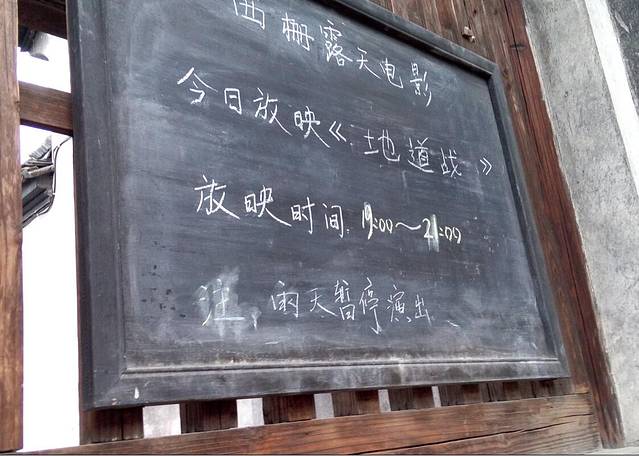 西栅露天电影
今日放映《地道战》
放映时间:19:00～21:00
注,雨天暂停演出